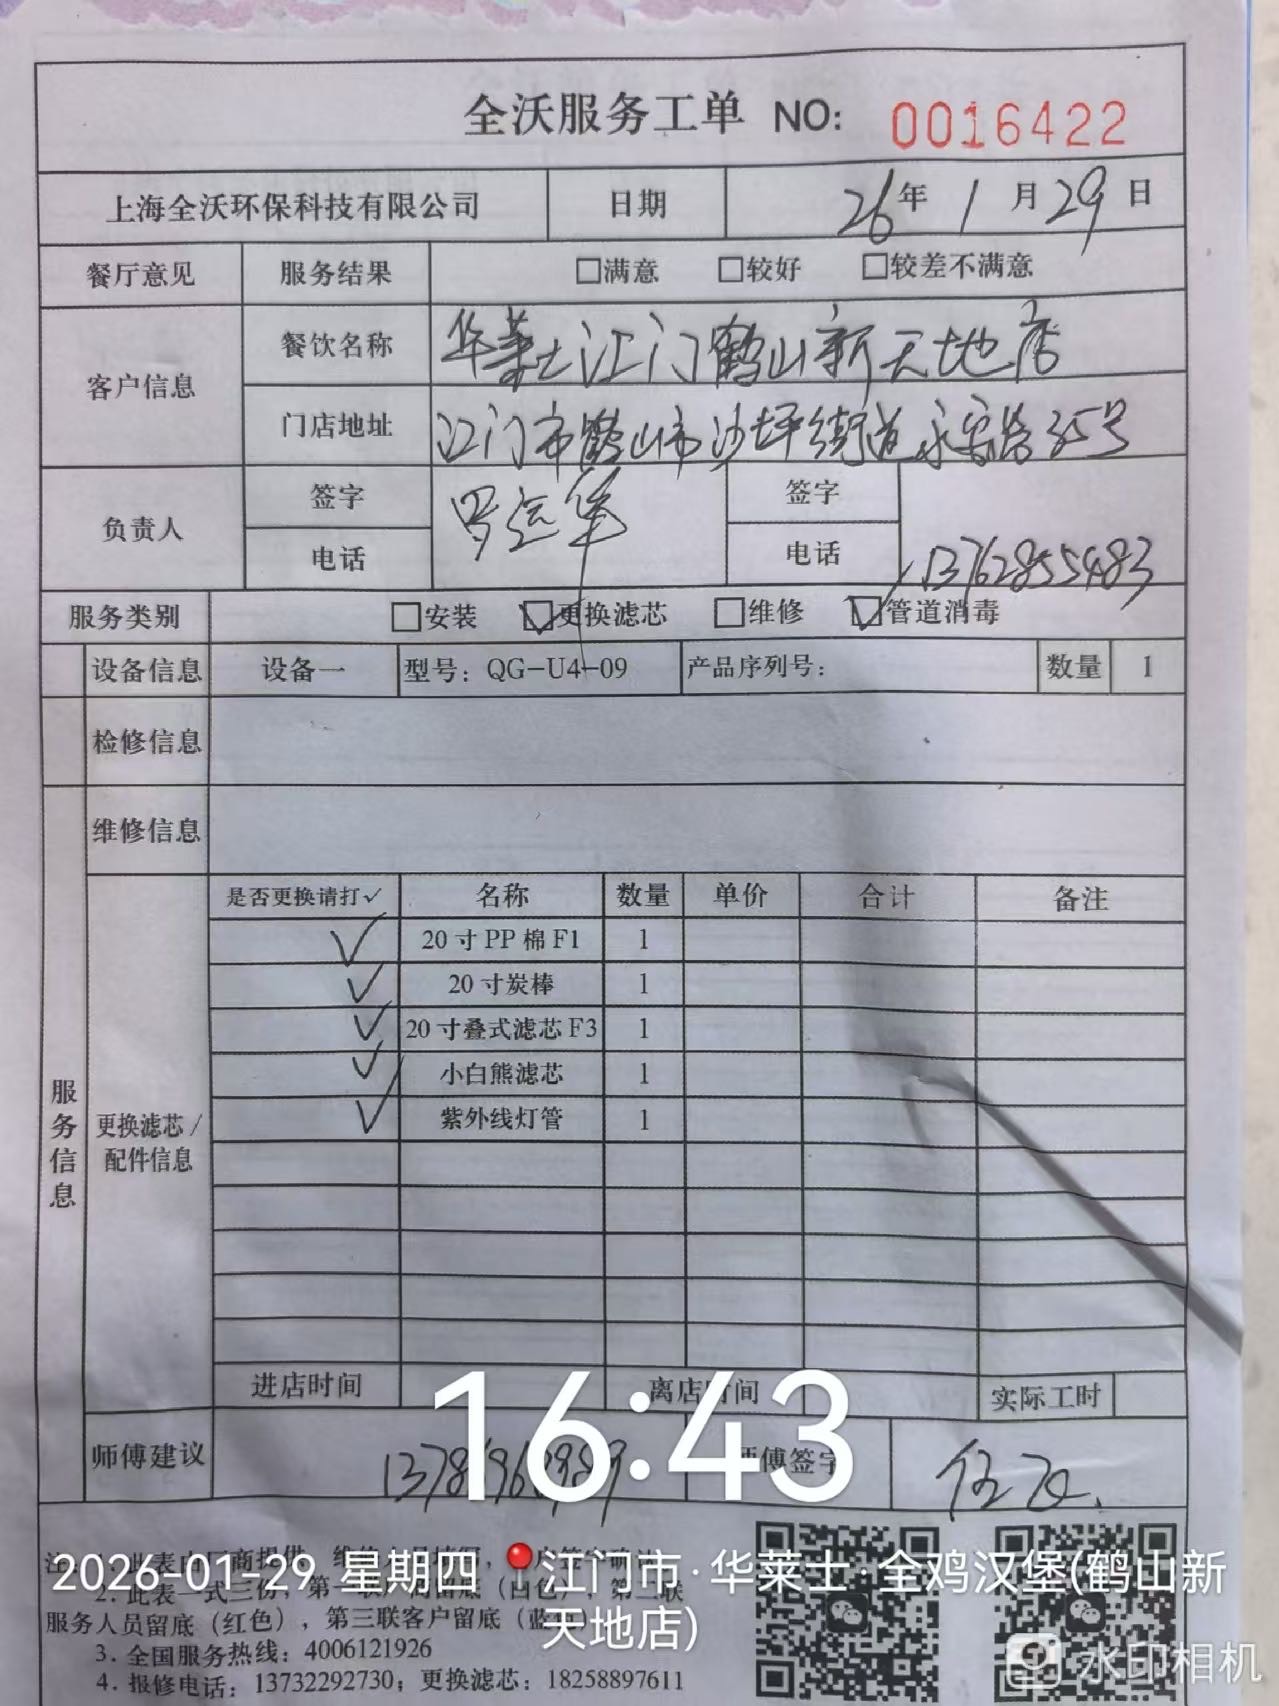 全沃服务工单 NO: 0016422
上海全沃环保科技有限公司 日期 26年1月29日
餐厅意见 服务结果 □满意 □较好 □较差不满意
客户信息 餐饮名称 华莱士江门鹤山新天地店
门店地址 江门市鹤山市沙坪街道永安路35号
负责人 签字 罗运华 签字
电话 电话 13762855483
服务类别 □安装 ☑更换滤芯 □维修 ☑管道消毒
设备信息 设备一 型号：QG-U4-09 产品序列号： 数量 1
检修信息
维修信息
服务信息
更换滤芯/配件信息
是否更换请打✓ 名称 数量 单价 合计 备注
✓ 20寸PP棉F1 1
✓ 20寸炭棒 1
✓ 20寸叠式滤芯F3 1
✓ 小白熊滤芯 1
✓ 紫外线灯管 1
进店时间 离店时间 实际工时
师傅建议 师傅签字
16:43
2026-01-29 星期四 江门市·华莱士·全鸡汉堡(鹤山新天地店)
2. 此表一式三份，第一联厂商留底（白色），第二联
服务人员留底（红色），第三联客户留底（蓝色）
3. 全国服务热线：4006121926
4. 报修电话：13732292730；更换滤芯：18258897611
水印相机